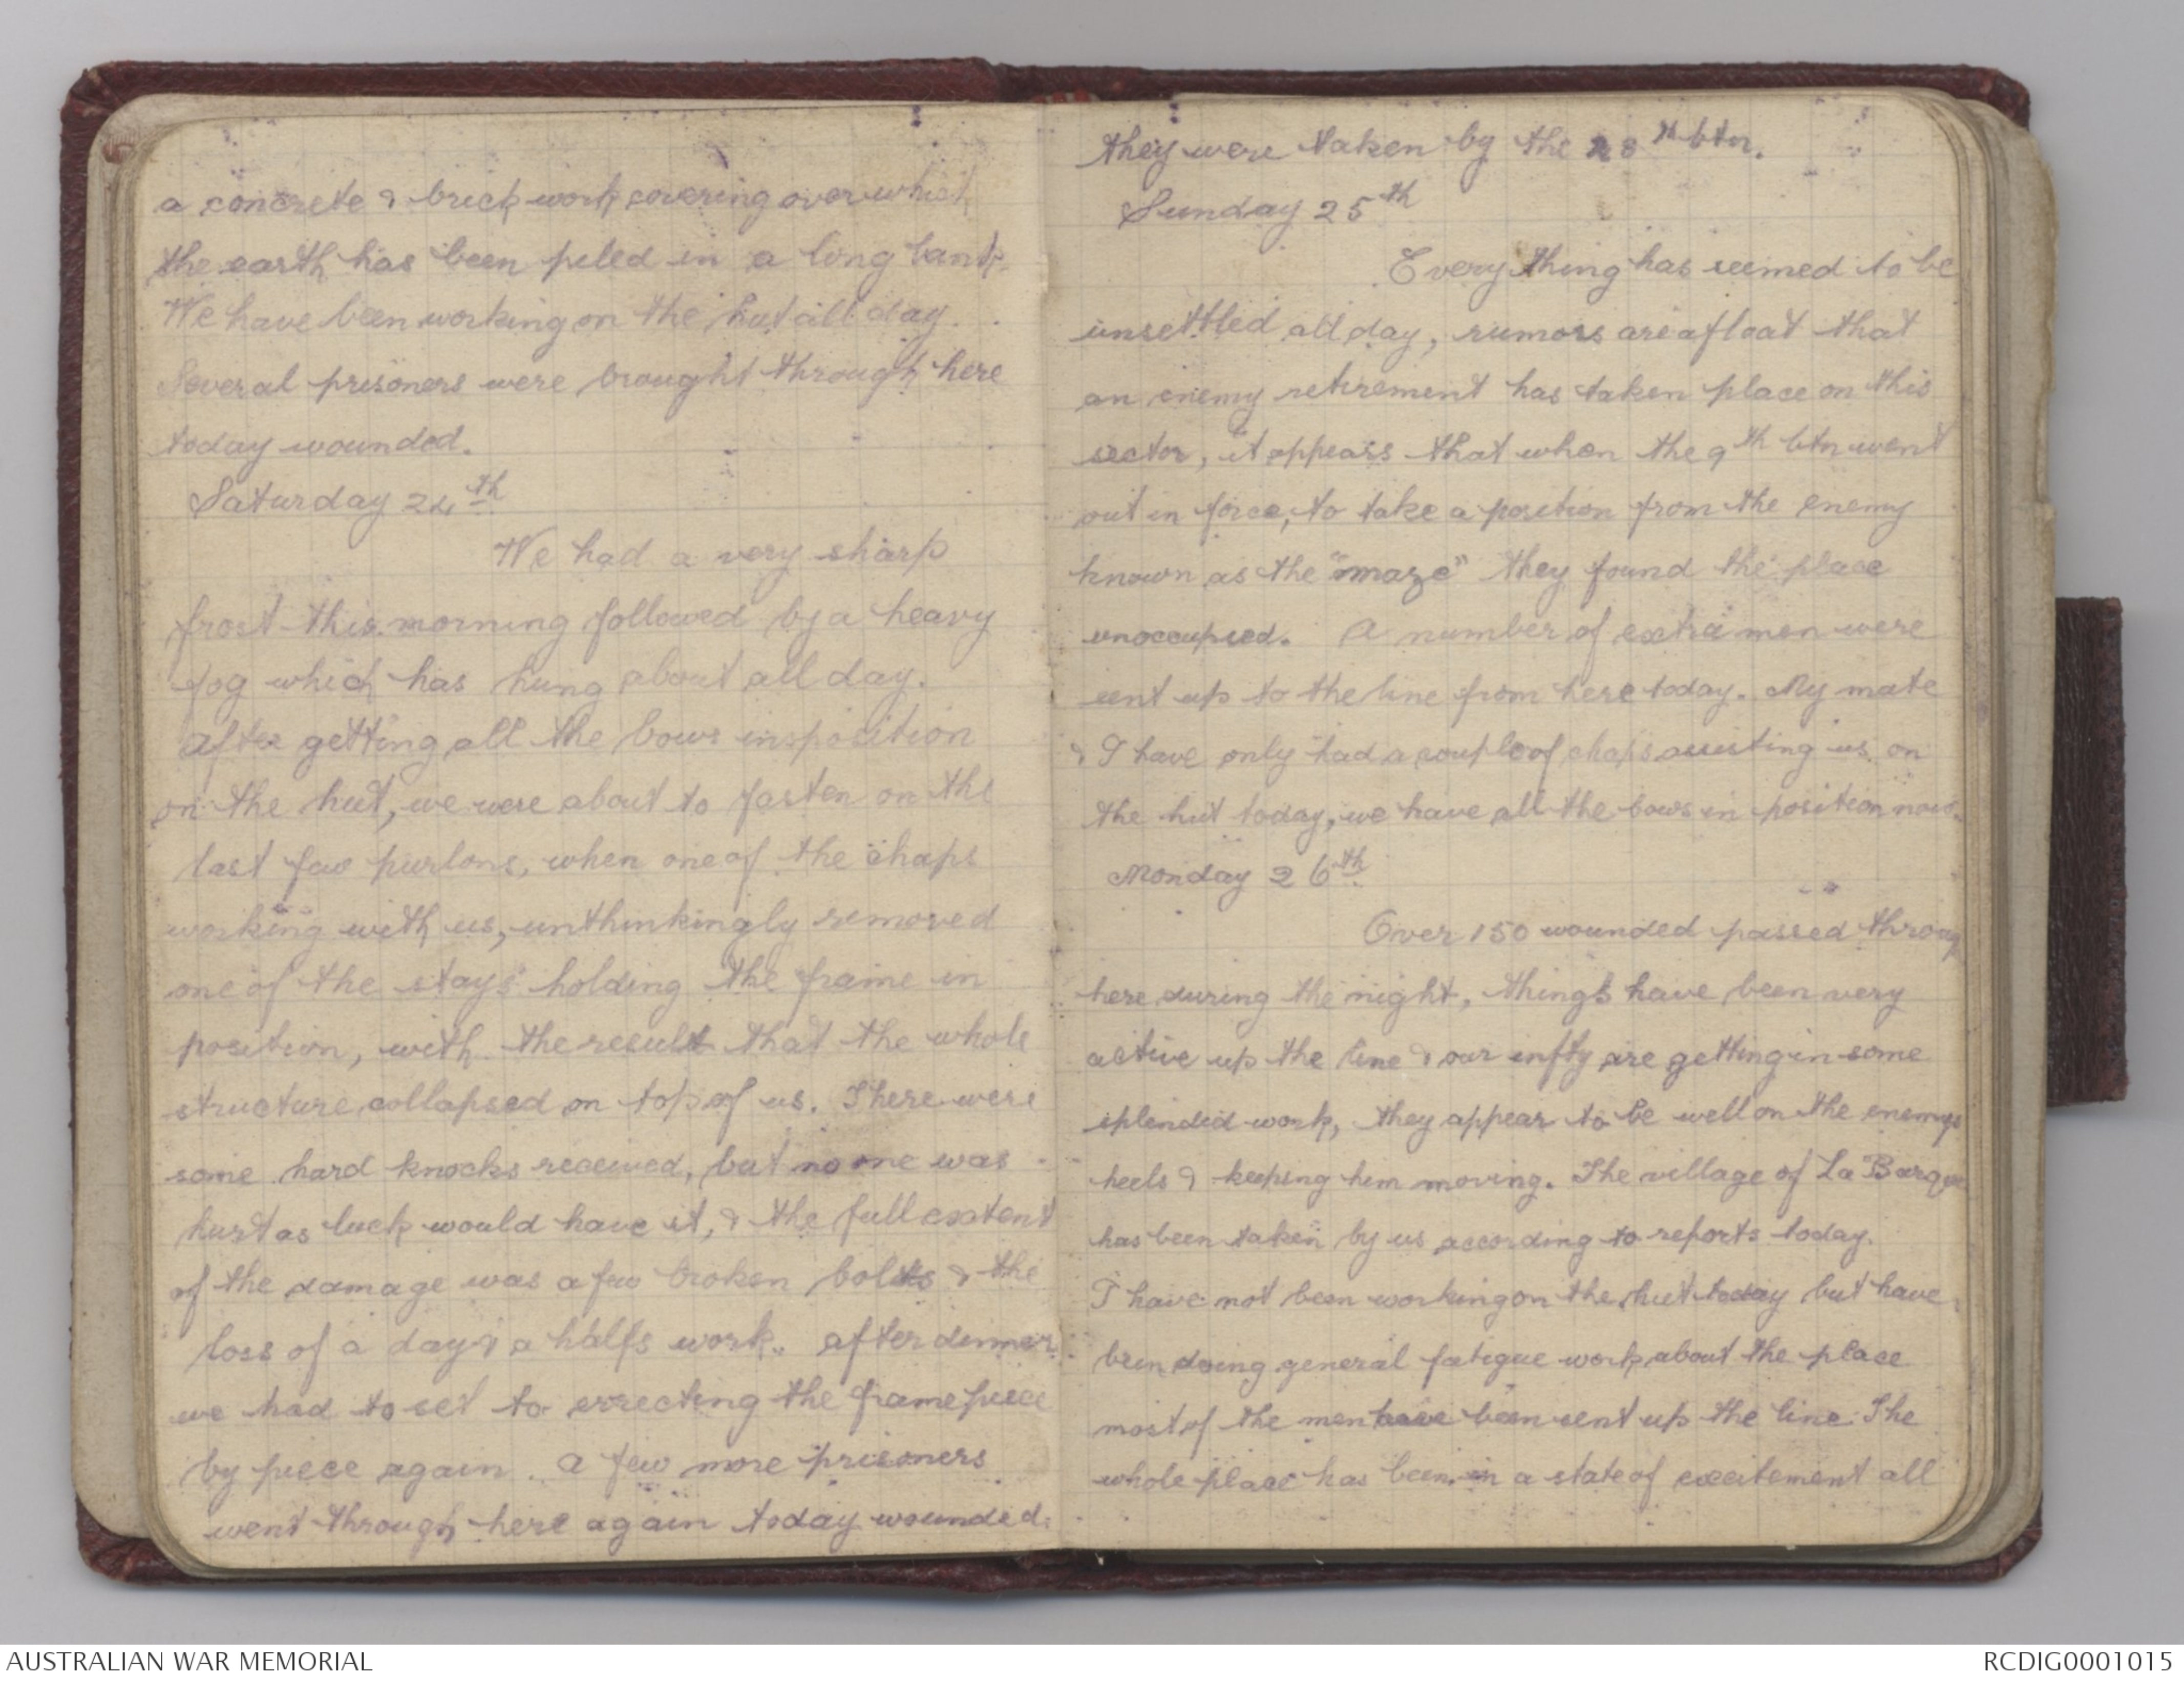 a concrete & brick work covering over which
the earth has been piled in a long bank.
We have been working on the hut all day.
Several prisoners were brought through here
today wounded.
Saturday 24th
We had a very sharp
frost this morning followed by a heavy
fog which has hung about all day.
After getting all the bows in position
on the hut, we were about to fasten on the
last few purlons, when one of the chaps
working with us, unthinkingly removed
one of the stays holding the frame in
position, with the result that the whole
structure collapsed on top of us. There were
some hard knocks received, but no one was
hurt as luck would have it, & the full extent
of the damage was a few broken bolts & the
loss of a day & a halfs work. After dinner
we had to set to errecting the frame piece
by piece again. A few more prisoners
went through here again today wounded.
they were taken by the 28th btn.
Sunday 25th
Everything has seemed to be
unsettled all day, rumors are afloat that
an enemy retirement has taken place on this
sector, it appears that when the 9th btn went
out in force, to take a position from the enemy
known as the "maze" they found the place
unoccupied. A number of extra men were
sent up to the line from here today. My mate
& I have only had a couple of chaps assisting us on
the hut today, we have all the bows in position now.
Monday 26th
Over 150 wounded passed throug
here during the night, things have been very
active up the line & our infty are getting in some
splendid work, they appear to be well on the enemys
heels & keeping him moving. The village of La Barque
has been taken by us according to reports today.
I have not been working on the hut today but have
been doing general fatigue work about the place
most of the men have been sent up the line. The
whole place has been in a state of excitement all
AUSTRALIAN WAR MEMORIAL
RCDIG0001015